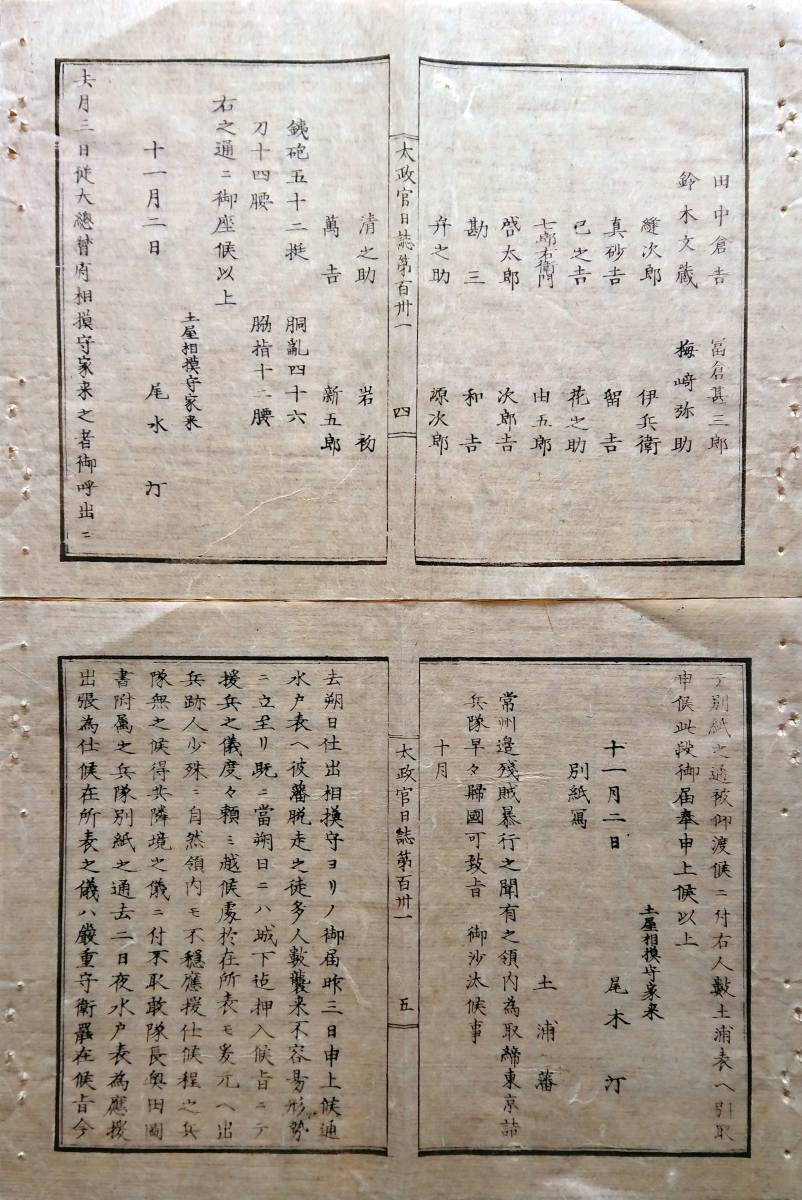 田中倉吉　冨倉甚三郎
鈴木文蔵　梅﨑弥助
縫次郎　伊兵衛
真砂吉　留吉
己之吉　花之助
七郎右衛門　由五郎
啓太郎　次郎吉
勘三　和吉
弁之助　源次郎
太政官日誌第百卅一　四
清之助　岩初
萬吉　新五郎
銕砲五十二挺　胴亂四十六
刀十四腰　脇指十二腰
右之通ニ御座候以上
土屋相摸守家来
十一月二日　尾水　汀
去月三日従大總督府相摸守家来之者御呼出ニ
テ別紙之通被仰渡候ニ付右人數土浦表ヘ引取
申候此段御届奉申上候以上
土屋相摸守家来
十一月二日　尾木　汀
別紙寫
土浦藩
常州邊殘賊暴行之聞有之領内為取締東京詰
兵隊早々歸國可致旨　御沙汰候事
十月
太政官日誌第百卅一　五
去朔日仕出相摸守ヨリノ御届昨三日申上候通
水戸表ヘ彼藩脱走之徒多人數襲来不容易形勢
ニ立至リ既ニ當朔日ニハ城下迠押入候旨ニテ
援兵之儀度々頼ミ越候處於在所表モ爰元ヘ出
兵跡人少殊ニ自然領内モ不穏應援仕候程之兵
隊無之候得共隣境之儀ニ付不取敢隊長奥田圖
書附属之兵隊別紙之通去二日夜水戸表為應援
出張為仕候在所表之儀ハ嚴重守衛罷在候旨今